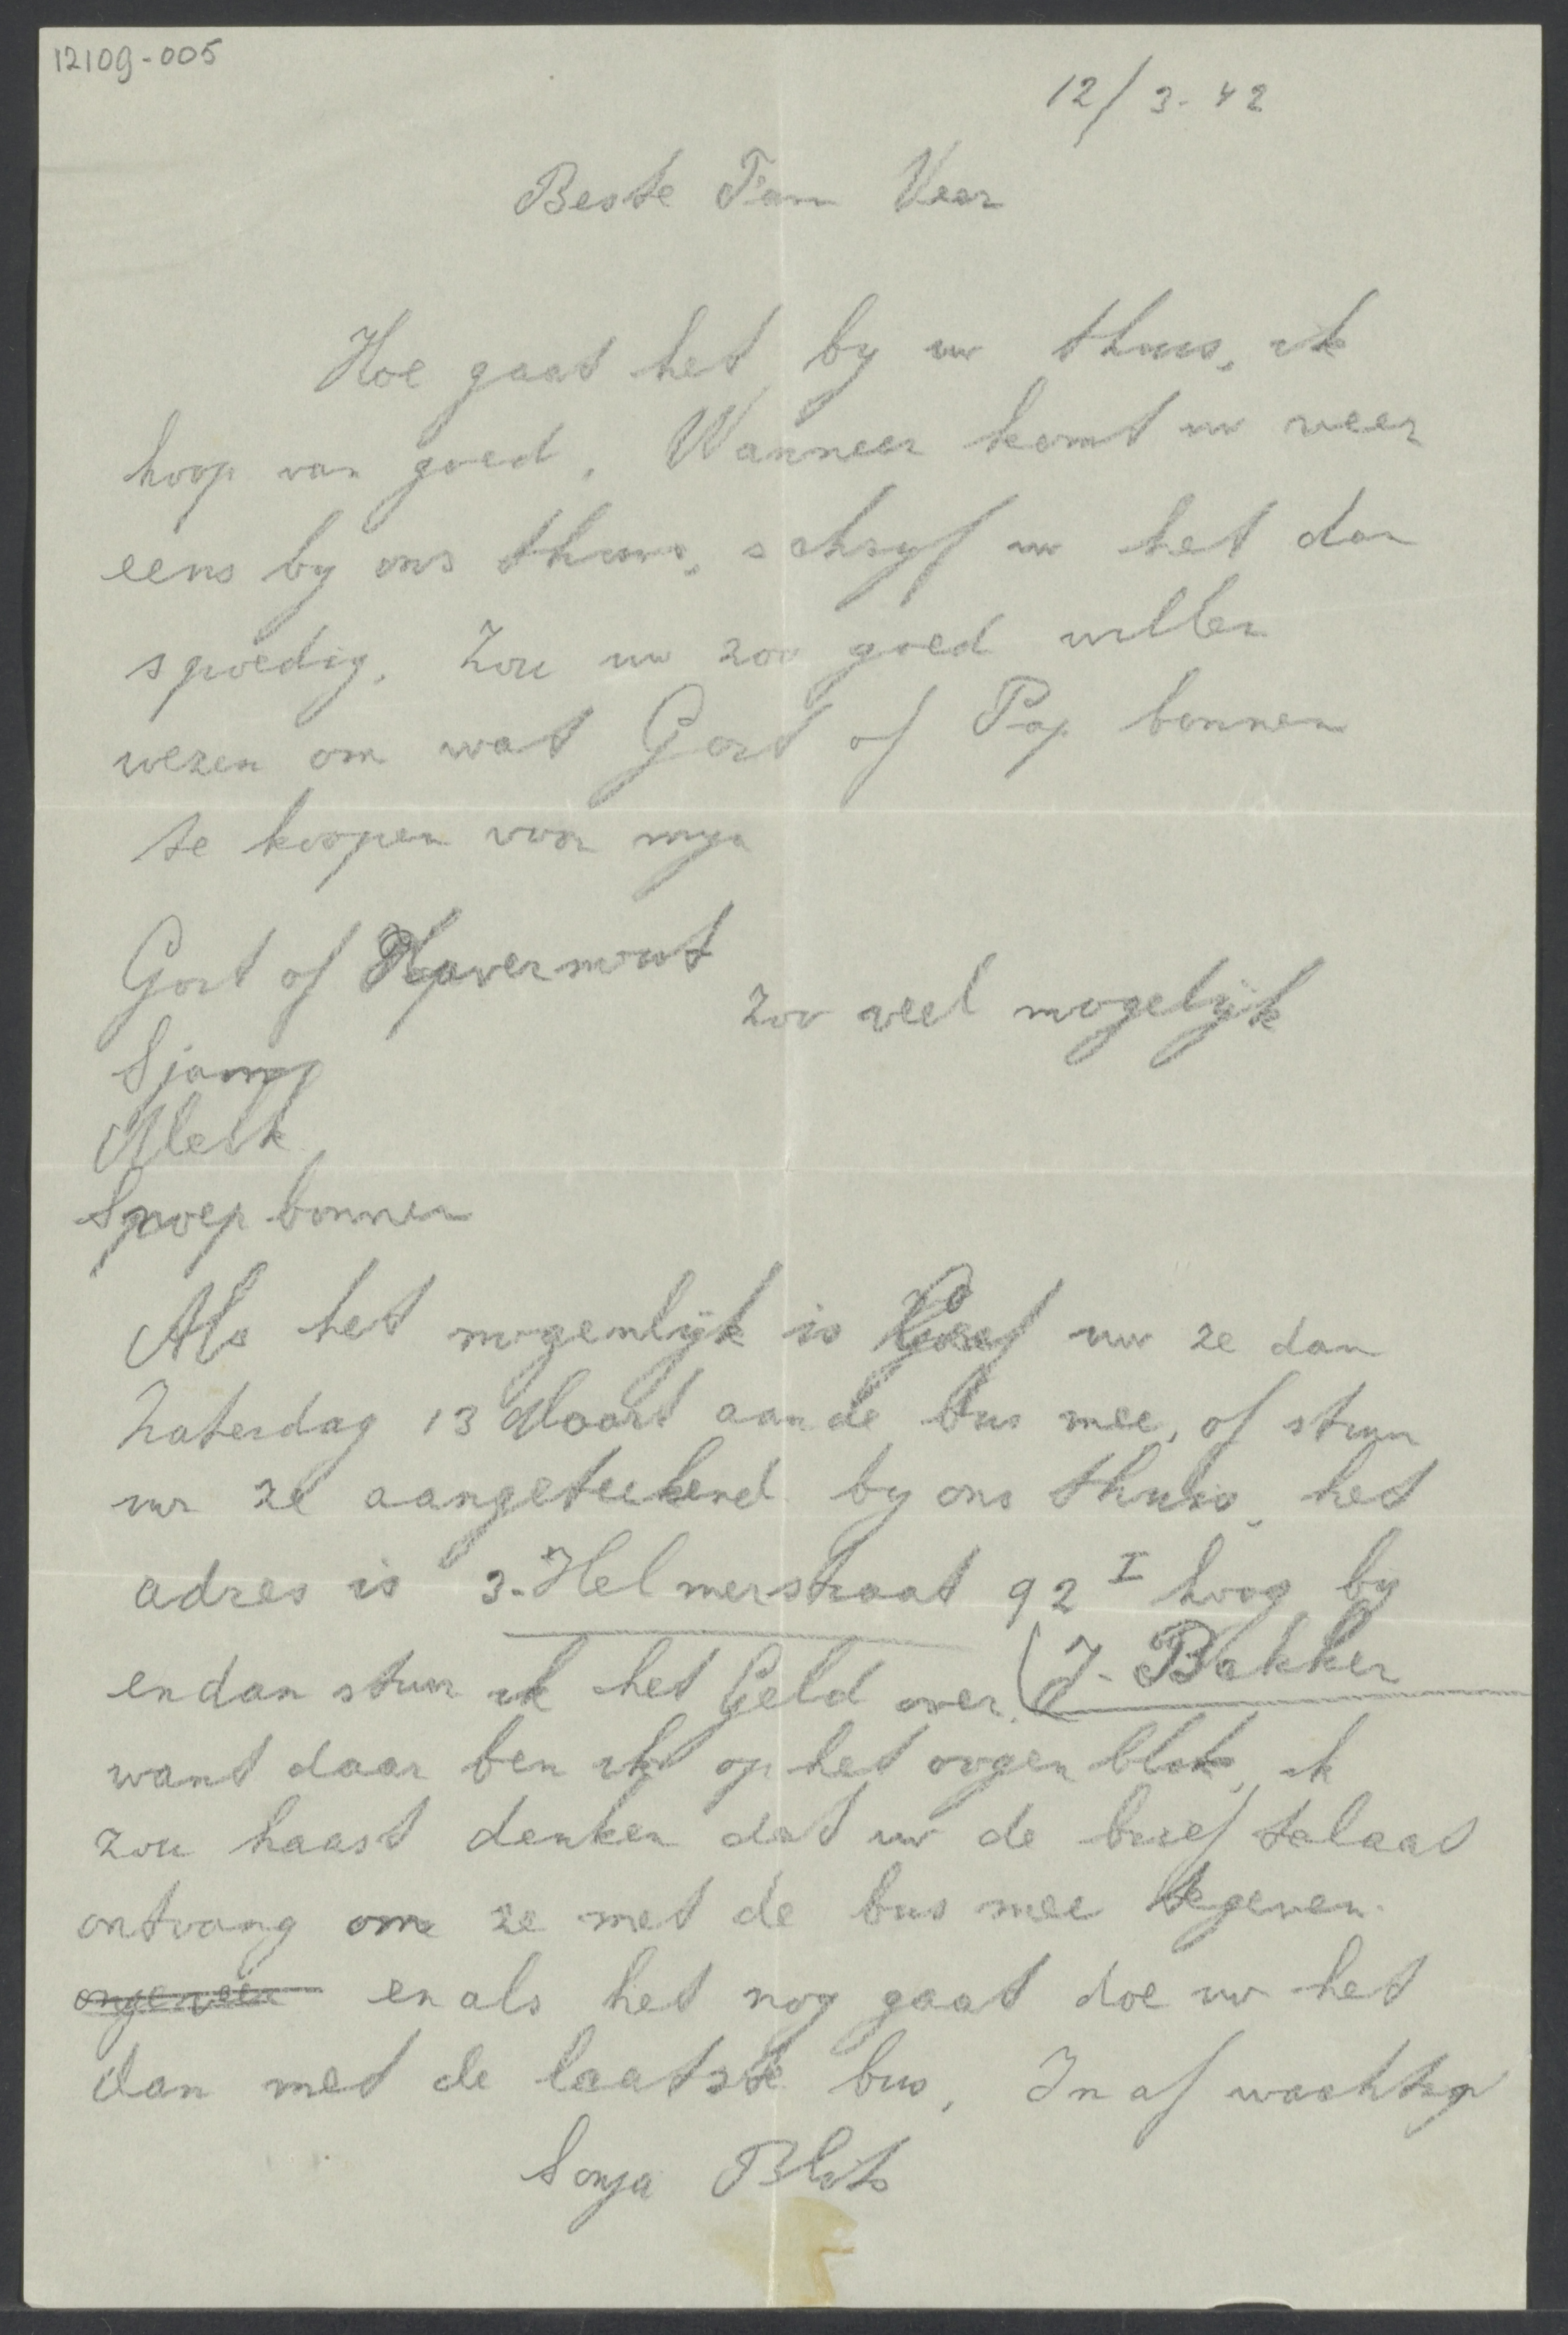 12109-005
12/3-42
Beste Fam Veer
Hoe gaat het by uw thuis, ik
hoop van goed. Wanneer komt uw weer
eens by ons thuis, schryf uw het dan
spoedig. Zou uw zoo goed willen
wezen om wat Gort of Pap bonnen
te koopen voor myn
Gort of Havermout
zoo veel mogelijk
Sjam
Melk
Snoep bonnen
Als het mogenlijk is Geef uw ze dan
Zaterdag 13 Maart aan de bus mee, of stuur
uw ze aangeteekend by ons thuis, het
adres is 3-Helmerstraat 92 I hoog by
(J. Bakker
en dan stuur ik het Geld over.
want daar ben ik op het oogenblik, ik
zou haast denken dat uw de brief telaat
ontvang om ze met de bus mee tegeven.
ongeveer en als het nog gaat doe uw het
dan met de laatste bus, In af wachting
Sonja Blits